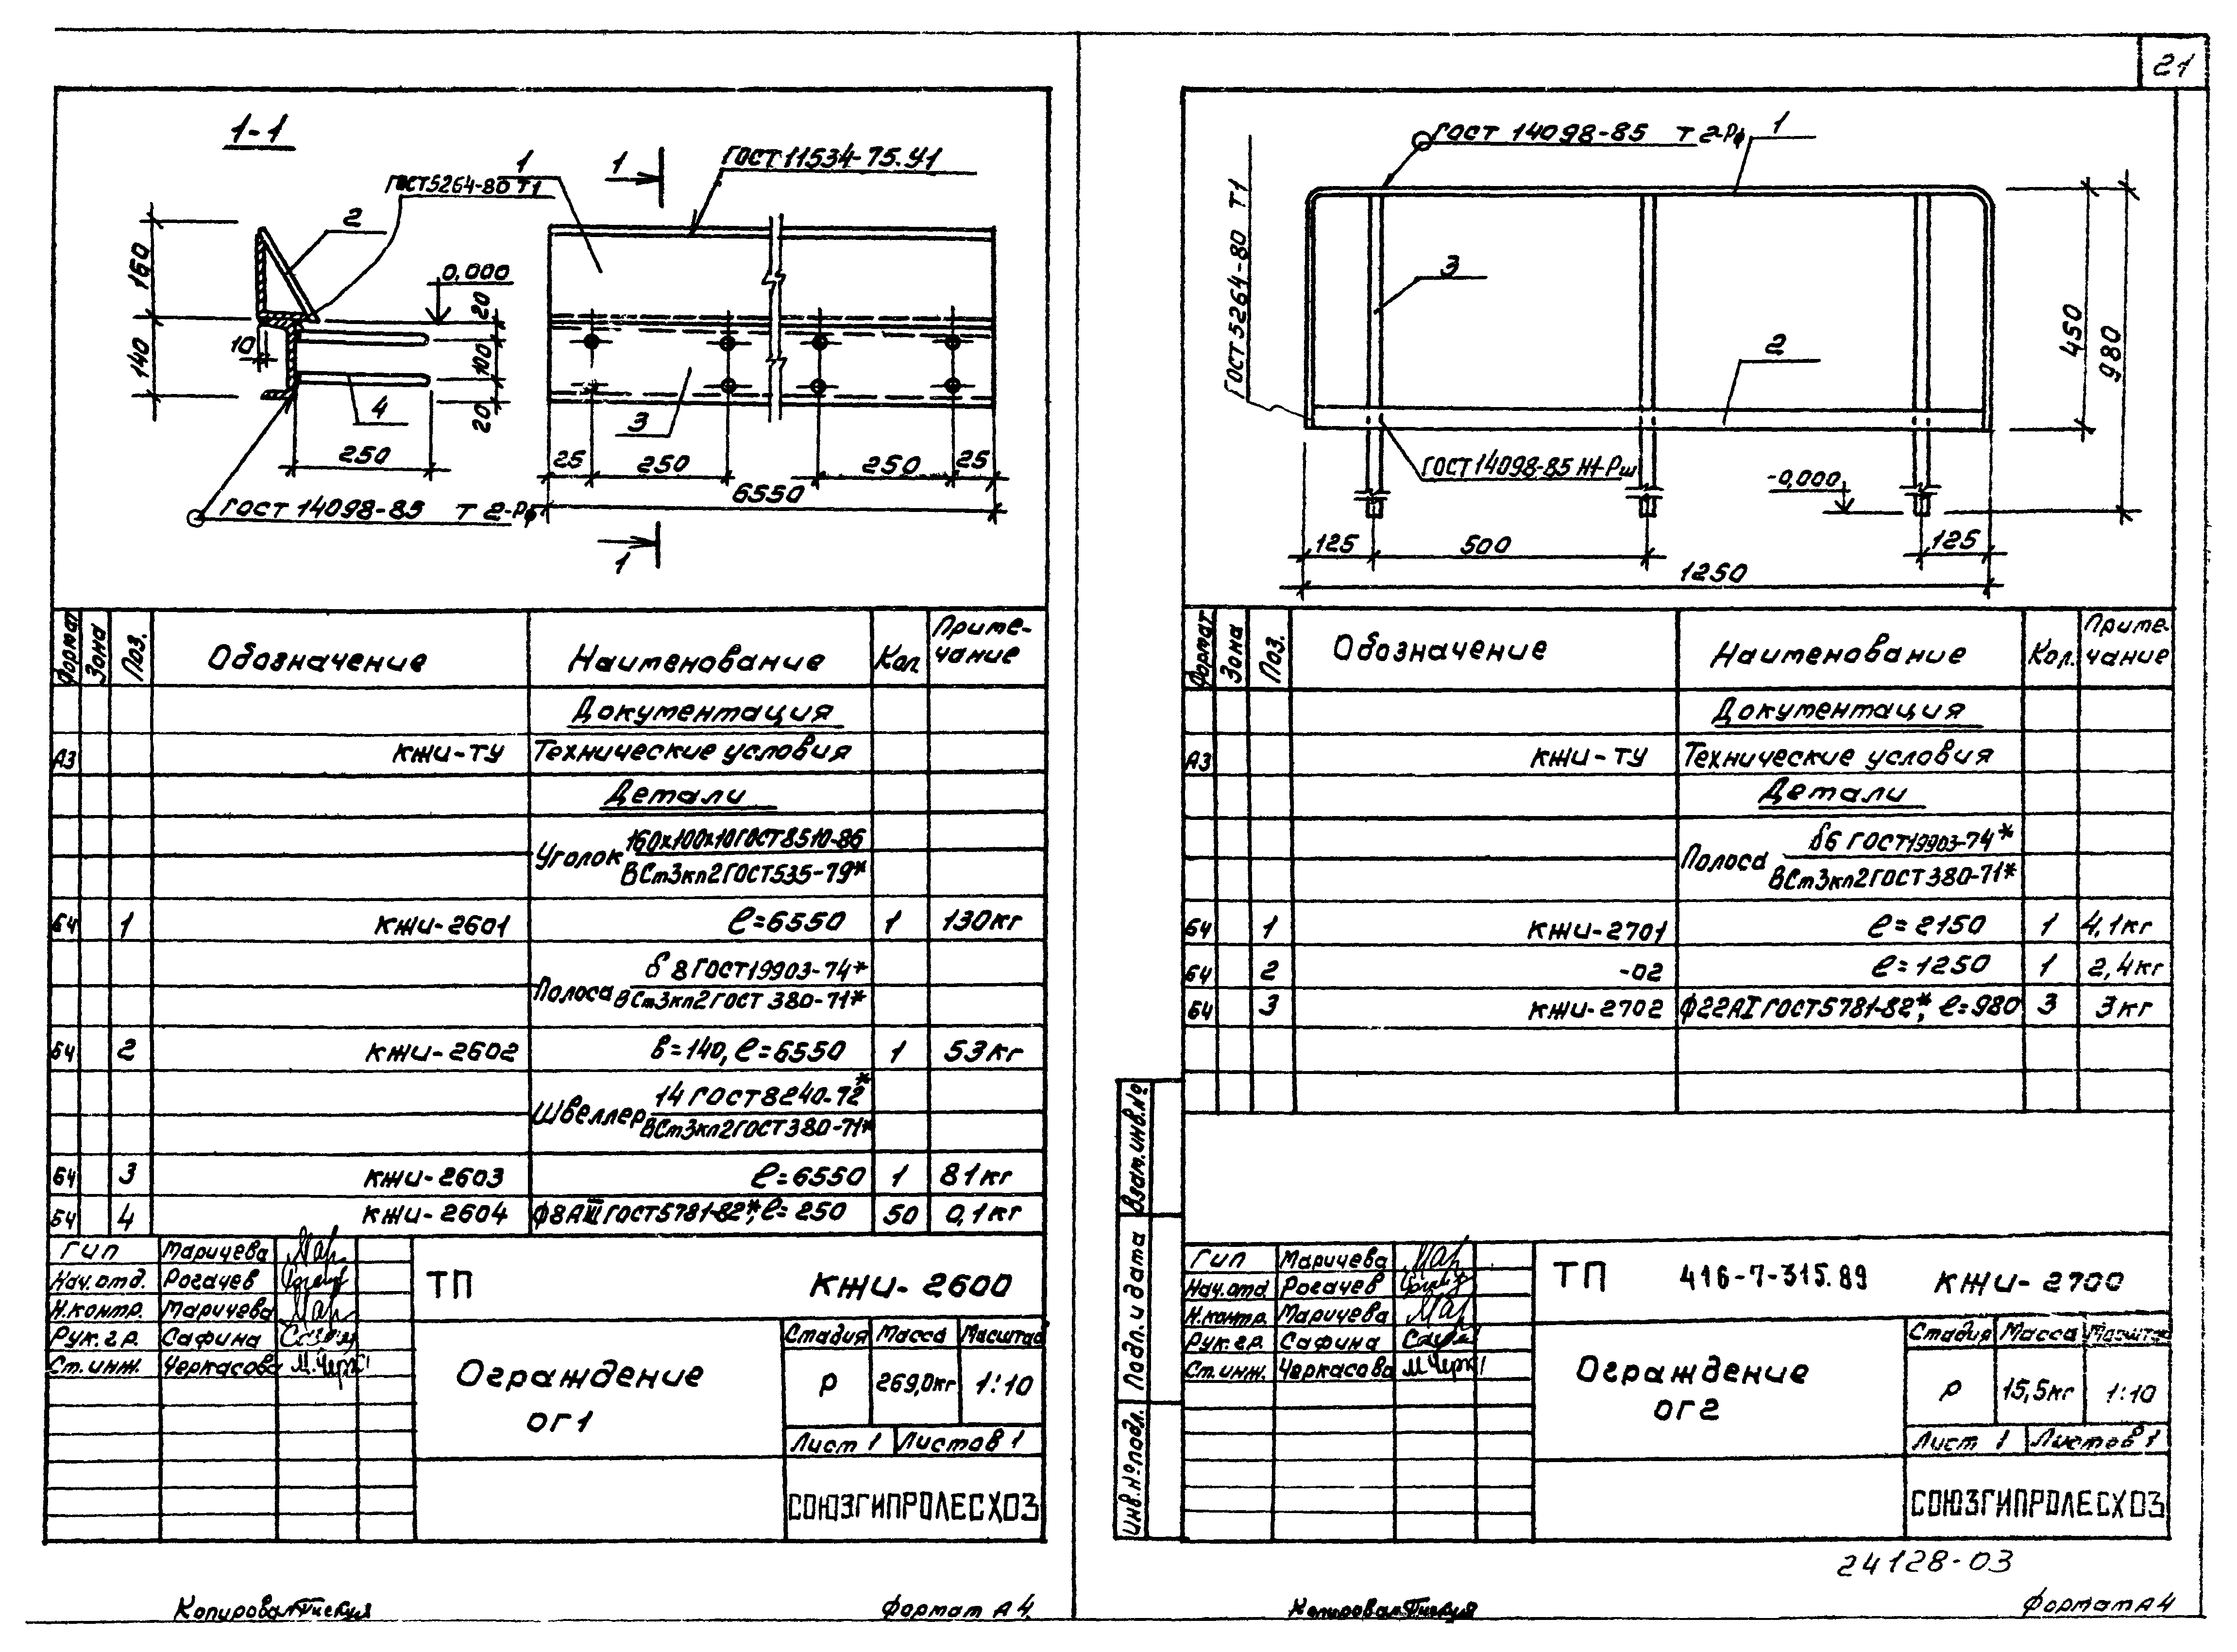 21
1-1
ГОСТ5264-80 Т1
1
1
ГОСТ 11534-75.У1
2
160
0,000
20
140
10
100
4
20
250
3
25
250
250
25
6550
ГОСТ 14098-85 Т 2-Рф
1
Формат
Зона
Поз.
Обозначение
Наименование
Кол.
Приме-
чание
Документация
А3 КЖИ-ТУ Технические условия
Детали
Уголок 160х100х10 ГОСТ 8510-86
ВСт3кп2 ГОСТ 535-79*
БЧ 1 КЖИ-2601 ℓ=6550 1 130кг
Полоса δ 8 ГОСТ 19903-74*
ВСт3кп2 ГОСТ 380-71*
БЧ 2 КЖИ-2602 в=140, ℓ=6550 1 53кг
Швеллер 14 ГОСТ 8240-72*
ВСт3кп2 ГОСТ 380-71*
БЧ 3 КЖИ-2603 ℓ=6550 1 81кг
БЧ 4 КЖИ-2604 ф8АIII ГОСТ 5781-82*, ℓ=250 50 0,1кг
ГИП Маричева
Нач.отд. Рогачев
Н.контр. Маричева
Рук.гр. Сафина
Ст.инж. Черкасова М.Черк
ТП КЖИ-2600
Ограждение
ОГ1
Стадия Масса Масштаб
Р 269,0кг 1:10
Лист 1 Листов 1
СОЮЗГИПРОЛЕСХОЗ
Копировал
Формат А4
ГОСТ 14098-85 Т 2-Рф
1
ГОСТ 5264-80 Т1
3
2
450
980
ГОСТ 14098-85 Н1-Рш
-0,000
125
500
125
1250
Формат
Зона
Поз.
Обозначение
Наименование
Кол.
Приме-
чание
Документация
А3 КЖИ-ТУ Технические условия
Детали
Полоса δ6 ГОСТ 19903-74*
ВСт3кп2 ГОСТ 380-71*
БЧ 1 КЖИ-2701 ℓ=2150 1 4,1кг
БЧ 2 -02 ℓ=1250 1 2,4кг
БЧ 3 КЖИ-2702 ф22АI ГОСТ 5781-82*, ℓ=980 3 3кг
Взам.инв.№
Подп. и дата
Инв.№подл.
ГИП Маричева
Нач.отд Рогачев
Н.контр. Маричева
Рук.гр. Сафина
Ст.инж. Черкасова М.Черк
ТП 416-7-315.89 КЖИ-2700
Ограждение
ОГ2
Стадия Масса Масштаб
Р 15,5кг 1:10
Лист 1 Листов 1
СОЮЗГИПРОЛЕСХОЗ
24128-03
Копировал
Формат А4